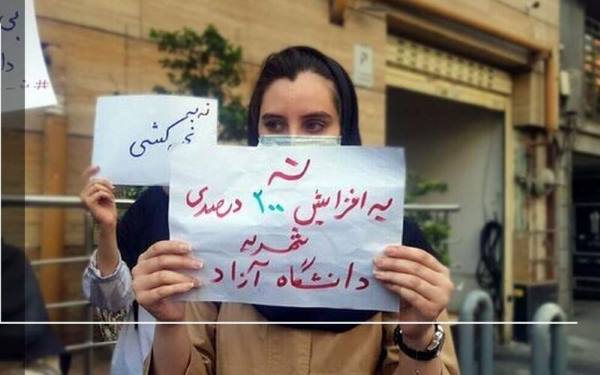 نه
به افزایش ۲۰۰ درصدی
شهریه
دانشگاه آزاد
نه به
کشی